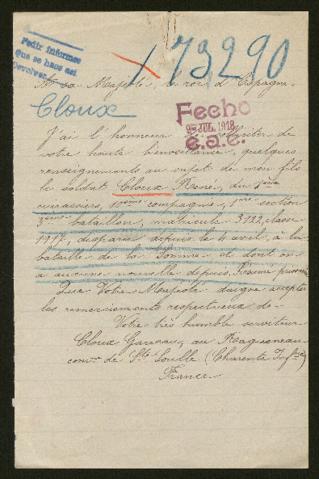 Pedir informes
que se haos así
Devolver
173290
A sa Majesté, le roi d'Espagne
Cloux
Fecho
9 JUL. 1918
C.a.C.
J'ai l'honneur de solliciter de
votre haute bienveillance, quelques
renseignements au sujet de mon fils
le soldat Cloux René, du
cuirassiers, 10ème compagnie, 1ère section
3ème bataillon, matricule 3122, classe
1917, disparu depuis le 4 avril, à la
bataille de la Somme et dont on
a aucune nouvelle depuis. Présumé
Que Votre Majesté daigne accepter
les remerciements respectueux de
Votre très humble serviteur
Cloux
comne de Ste Soulle (Charente Infre)
France